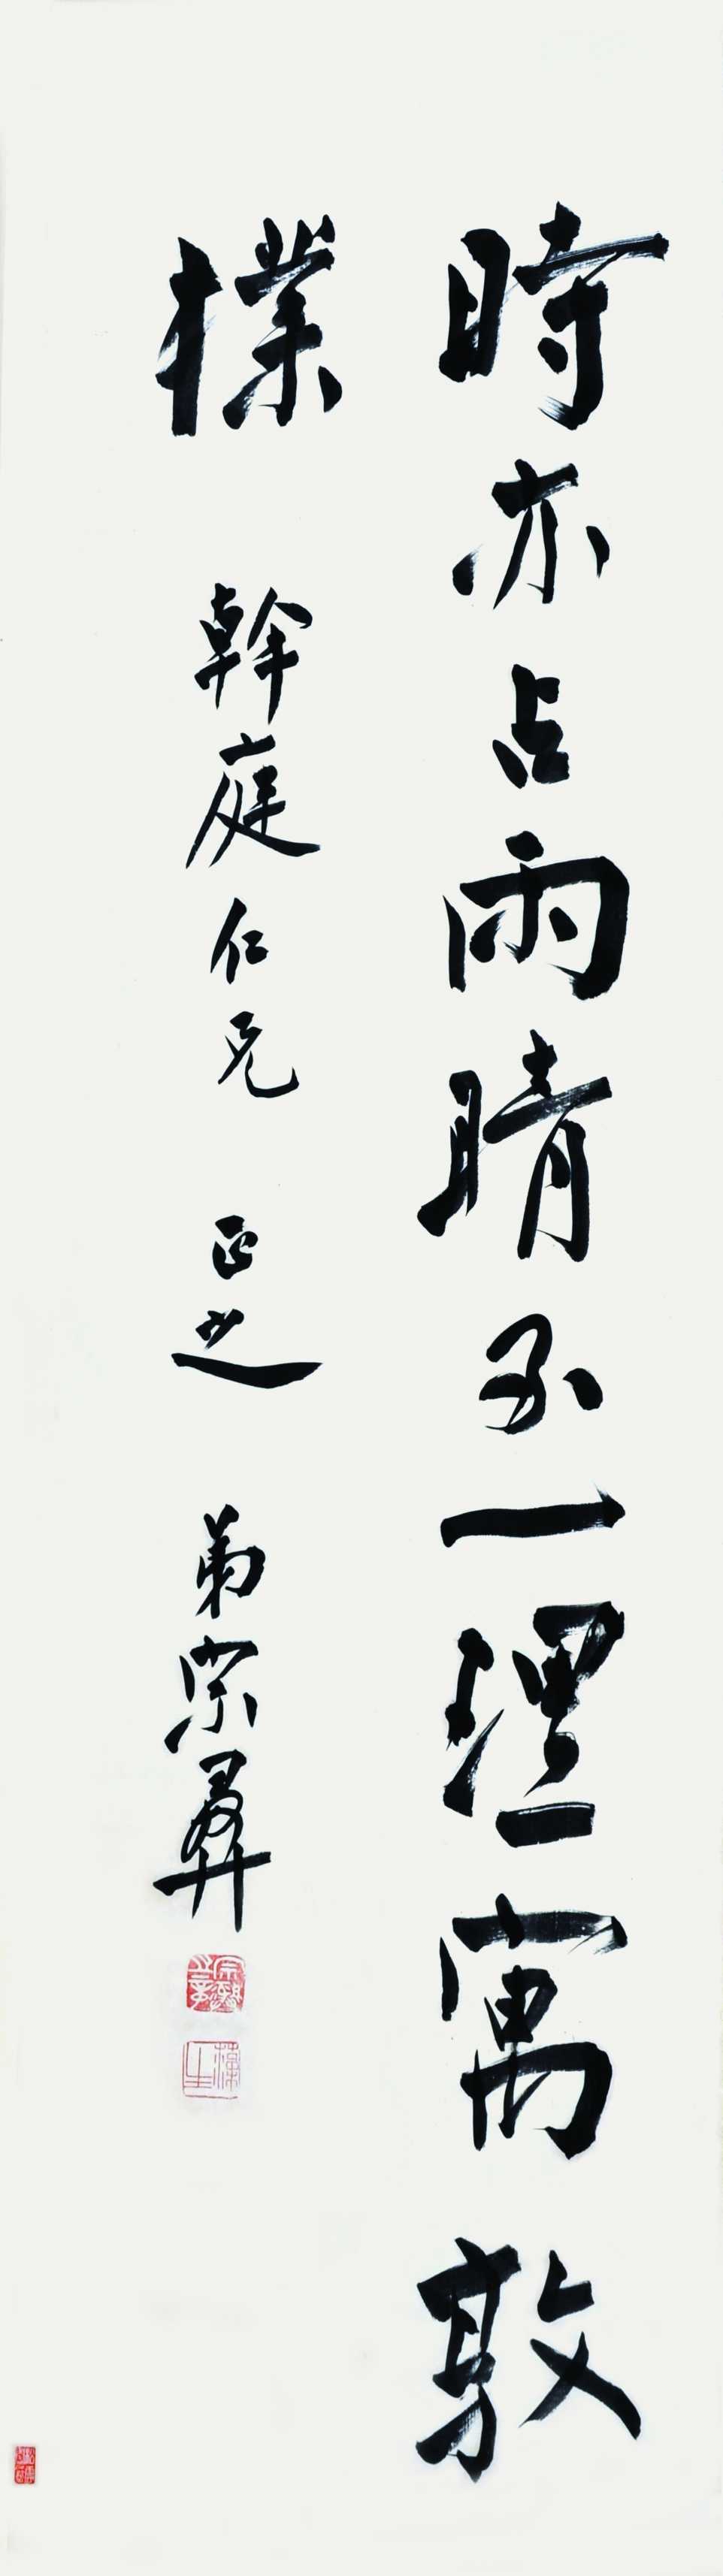 時亦占雨晴不一理寓敦
樸 幹庭仁兄 正之 弟宗彝